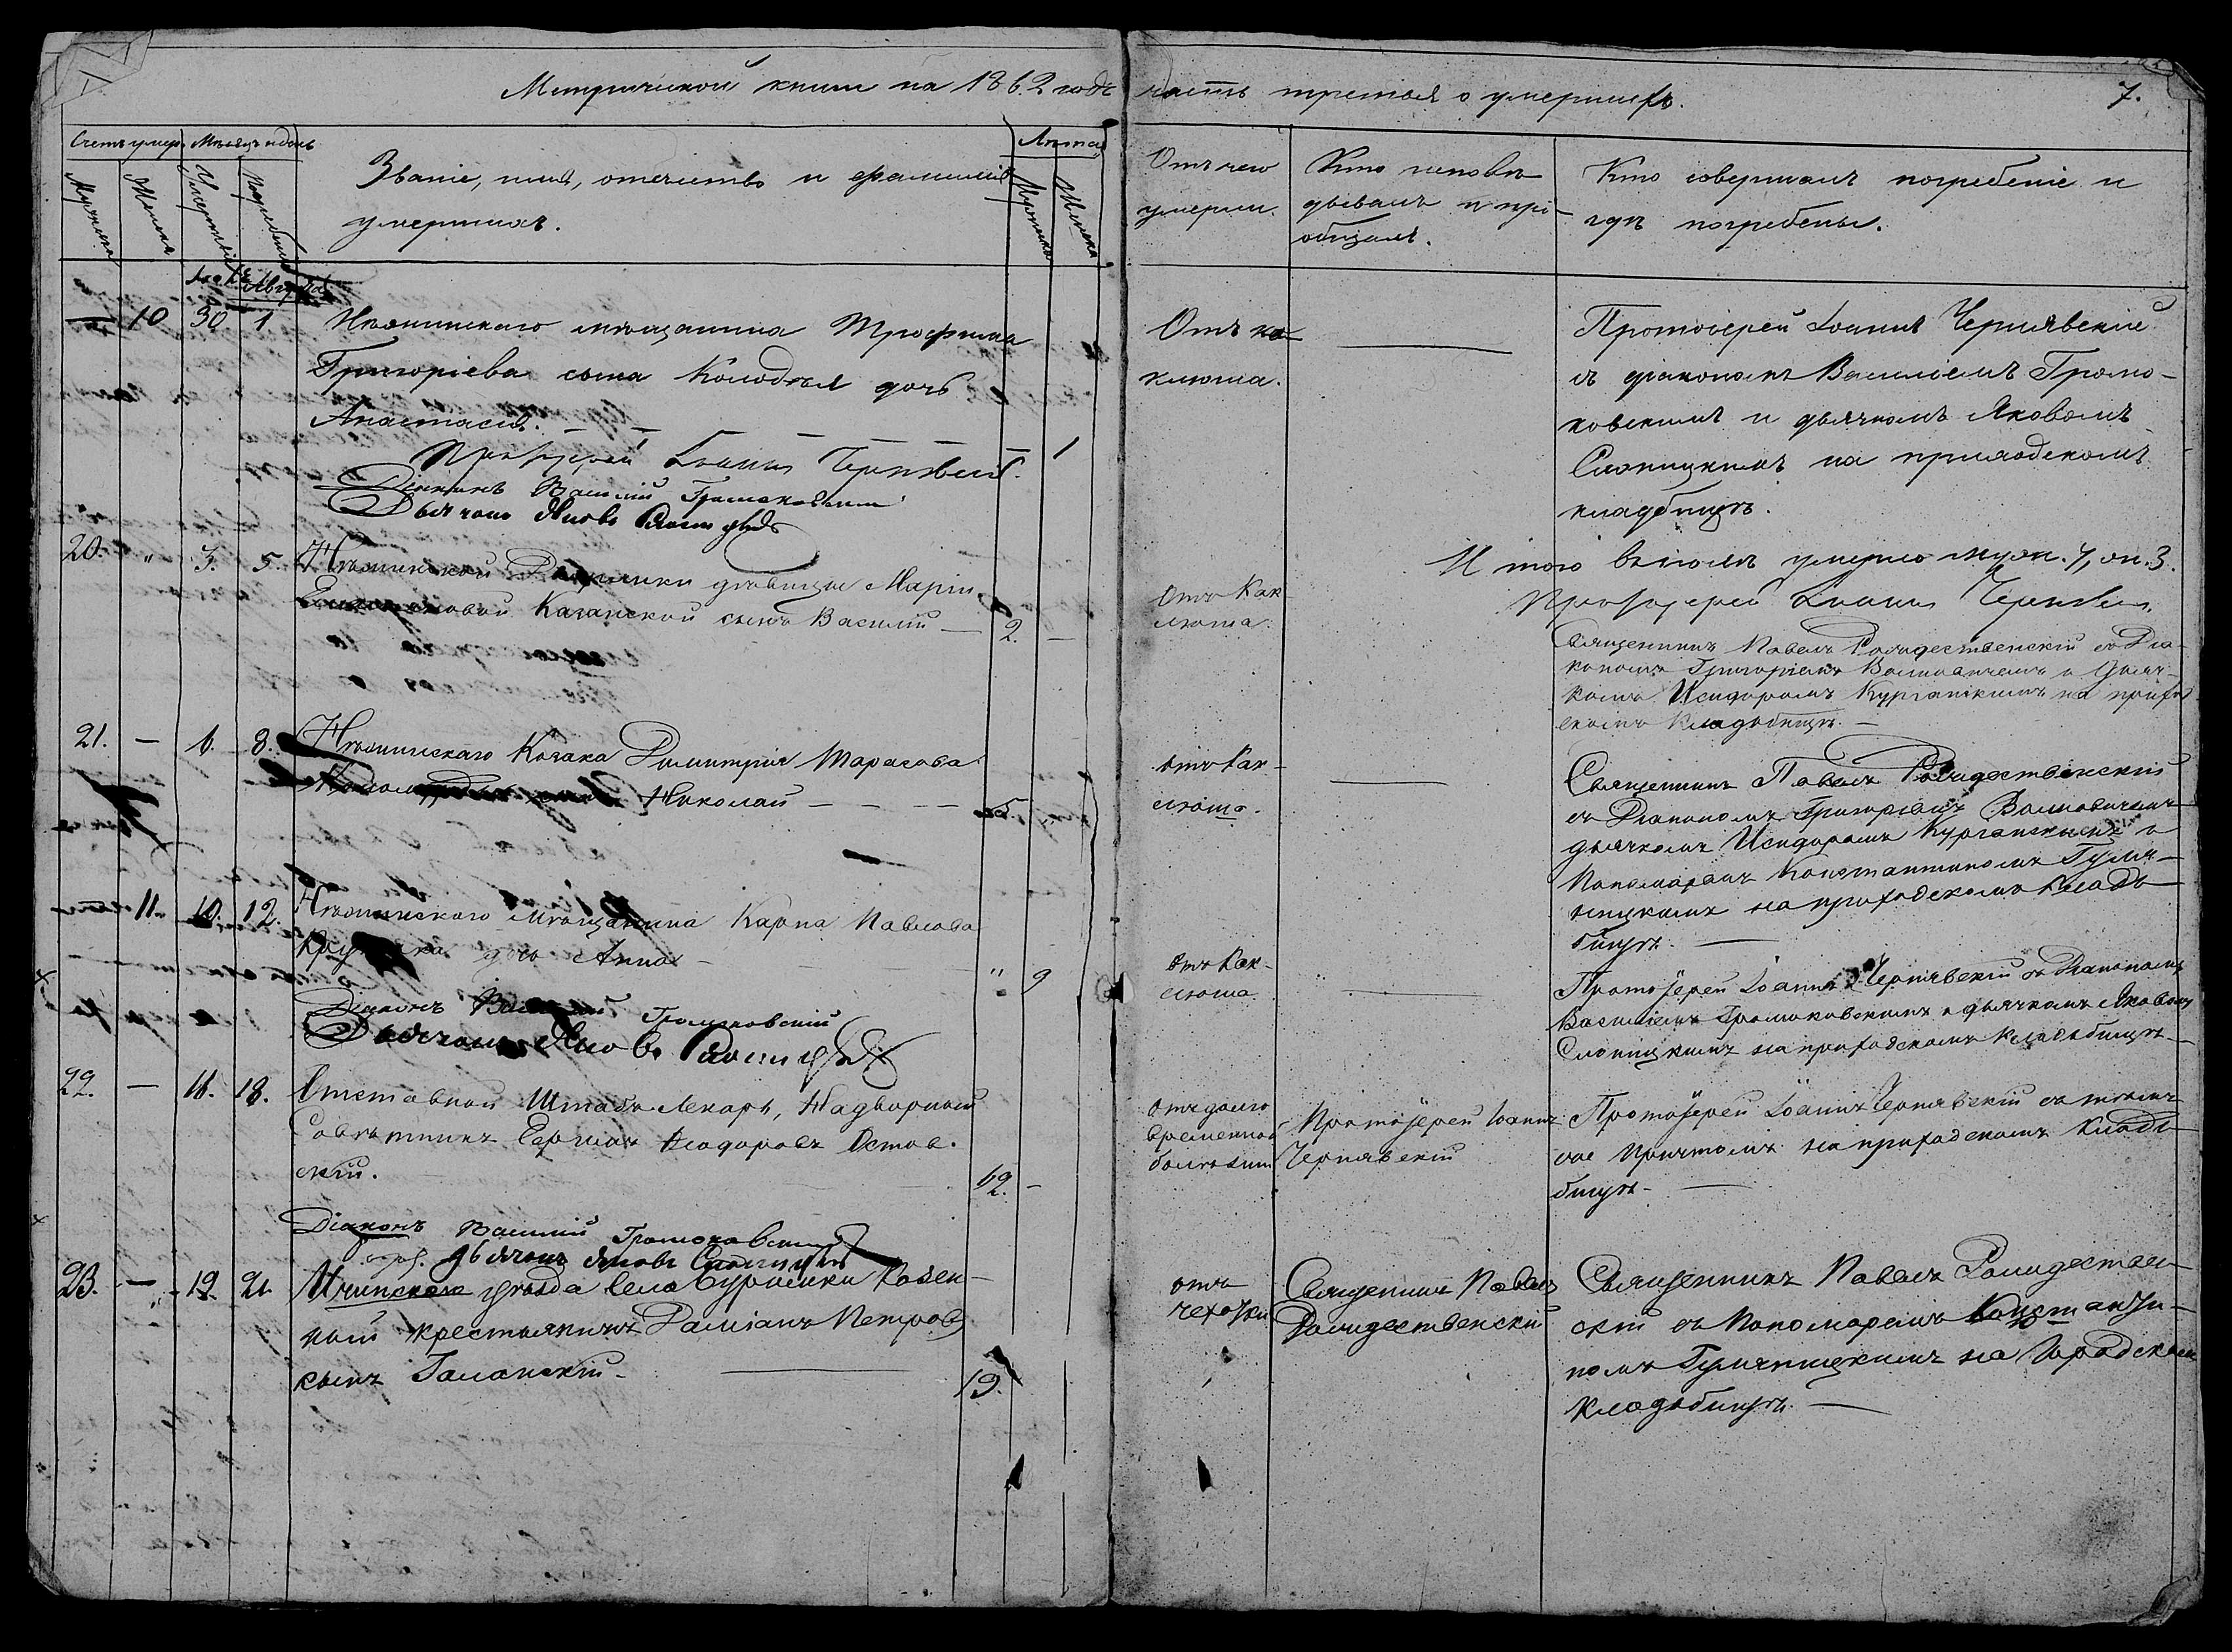 Метрической книги на 1862 годъ часть третья о умершихъ.
7.
Счетъ умер. Мѣсяцъ и день
Лѣта
Мужеска
Женска
Умертвія
Погребенія
Званіе, имя, отечество и фамилія
умершихъ.
Мужеска
Женска
Отъ чего
умерли.
Кто исповѣ-
дывалъ и прі-
общалъ.
Кто совершалъ погребеніе и
гдѣ погребены.
Августа
— 10 30 1
Нѣжинскаго мѣщанина Трофима
Григоріева сына Колодѣя дочь
Анастасія. — — — — — — 1
Протоіерей Іоаннъ Чернявскій.
Діаконъ Василій Громоковскій
Дьячокъ Яковъ
Отъ ка-
клюша.
Протоіерей Іоаннъ Чернявскій
съ діакономъ Василіемъ Громо-
ковскимъ и дьячкомъ Яковомъ
Слоницкимъ на приходскомъ
кладбищѣ.
Итого въ іюлѣ умерло муж. 7, ж. 3.
Протоіерей Іоаннъ Чернявскій.
20. " 3. 5
Нѣжинской дѣвицы Маріи
Казанской сынъ Василій — 2. —
Отъ Как
люша.
Священникъ Павелъ Рождественскій съ Діа-
кономъ Григоріемъ Волковичемъ и Дьяч-
комъ Исидоромъ Курганскимъ на приход
скомъ Кладбищѣ. —
21. — 6. 8.
Нѣжинскаго Козака Димитрія Тарасова
Николай — — — — 5
отъ Как-
люша.
Священникъ Павелъ Рождественскій
съ Діакономъ Григоріемъ Волковичемъ
дьячкомъ Исидоромъ Курганскимъ и
Пономаремъ Константиномъ Гумя-
ницкимъ на приходскомъ Клад-
бищѣ. —
— 11. 10. 12.
Нѣжинскаго Мѣщанина Карпа Павлова
дочь Анна — — " 9
Діаконъ Громоковскій
Дьячокъ Яковъ
отъ Как-
люша.
Протоіерей Іоаннъ Чернявскій съ Діакономъ
Василіемъ Громоковскимъ и дьячкомъ Яковомъ
Слоницкимъ на приходскомъ Кладбищѣ —
22. — 16. 18.
Отставной Штабъ Лекарь, Надворный
Совѣтникъ Ѳеодоровъ Остов-
скій. 62. —
Діаконъ Василій Громоковскій
дьячокъ Яковъ
отъ долго
временной
болѣзни
Протоіерей Іоаннъ
Чернявскій
Протоіерей Іоаннъ Чернявскій съ тѣмъ
же Причтомъ на приходскомъ Клад-
бищѣ. —
23. — 19. 21.
уѣзда Села Буромки Казен-
ный крестьянинъ Даміанъ Петровъ
сынъ — 19.
отъ
чехотки
Священникъ Павелъ
Рождественскій
Священникъ Павелъ Рождествен-
скій съ Пономаремъ Константи-
номъ Гумяницкимъ на Градскомъ
Кладбищѣ. —